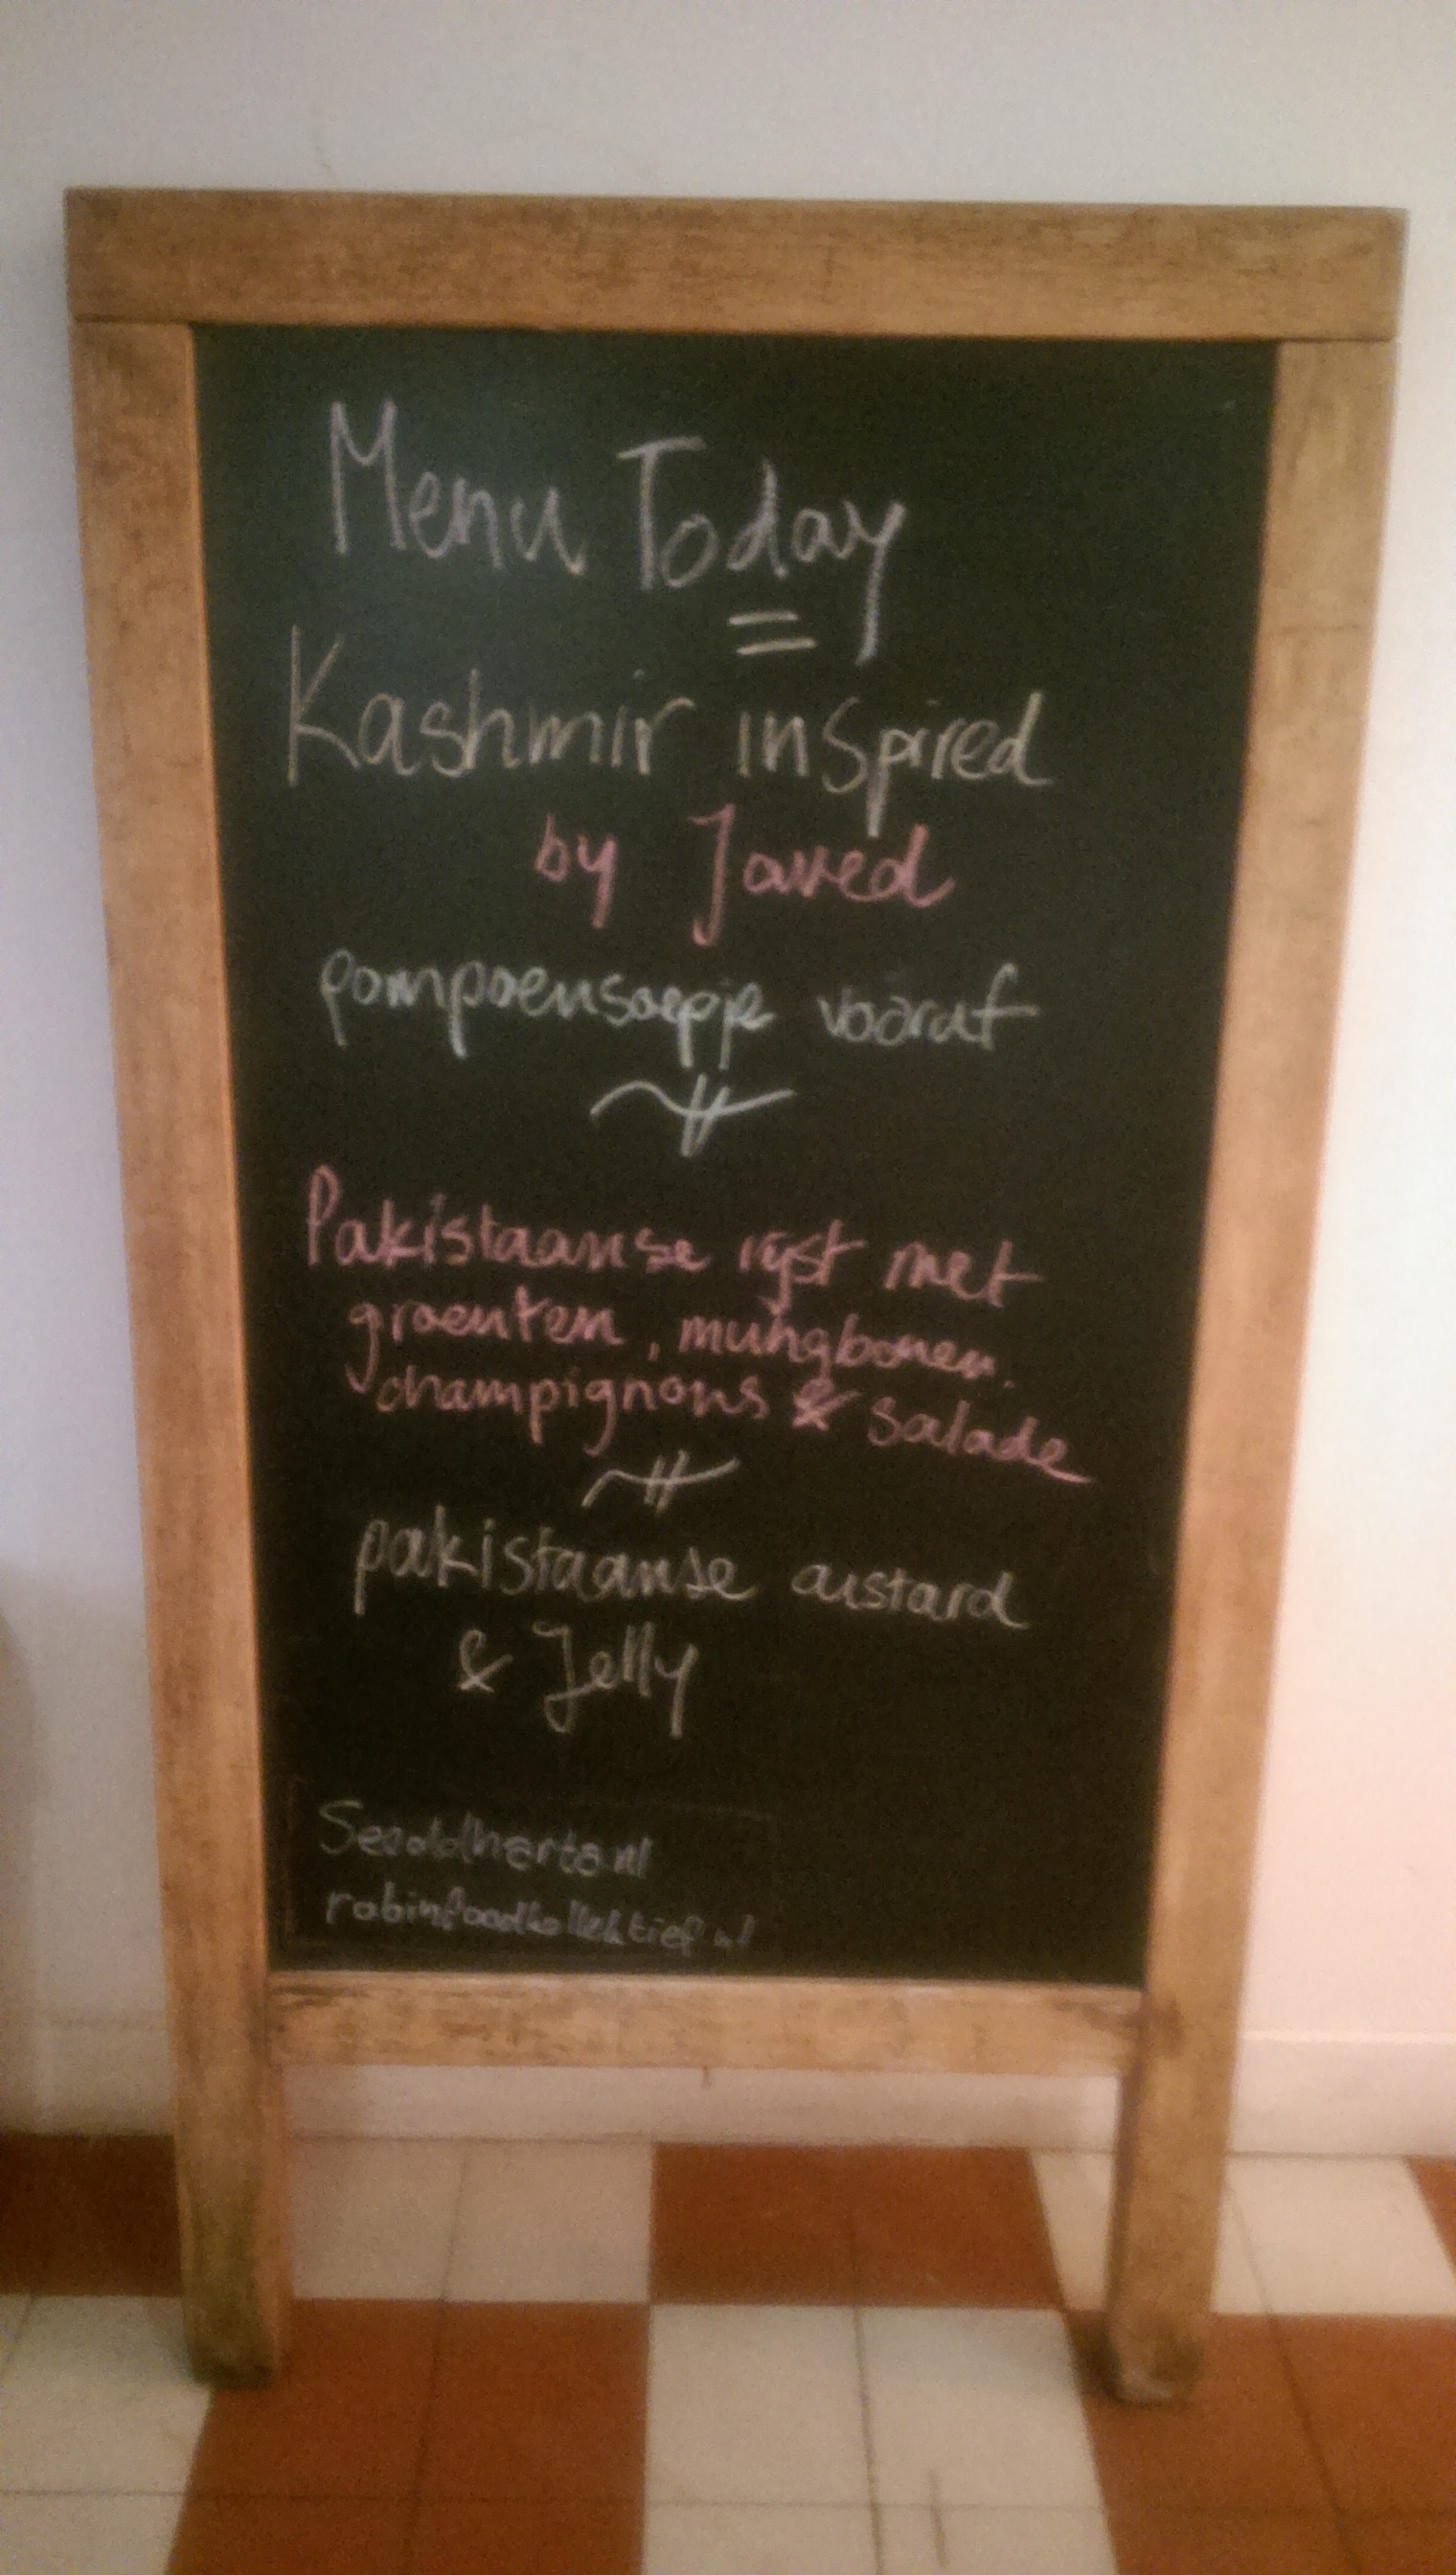 Menu Today
=
Kashmir inspired
by Javed
pompoensoepje vooraf
Pakistaanse rijst met
groenten, mungbonen,
champignons & salade
pakistaanse custard
& Jelly
robinfoodkollektief.nl